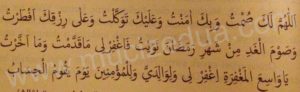 اَللّٰهُمَّ لَكَ صُمْتُ وَ بِكَ اٰمَنْتُ وَعَلَيْكَ تَوَكَّلْتُ وَعَلٰى رِزْقِكَ اَفْطَرْتُ
وَصَوْمَ الْغَدِ مِنْ شَهْرِ رَمَضَانَ نَوَيْتُ فَاغْفِرْ لِى مَاقَدَّمْتُ وَمَا اَخَّرْتُ
يَاوَاسِعَ الْمَغْفِرَةِ اِغْفِرْ لِى وَلِوَالِدَىَّ وَلِلْمُؤْمِنِينَ يَوْمَ يَقُومُ الْحِسَابُ